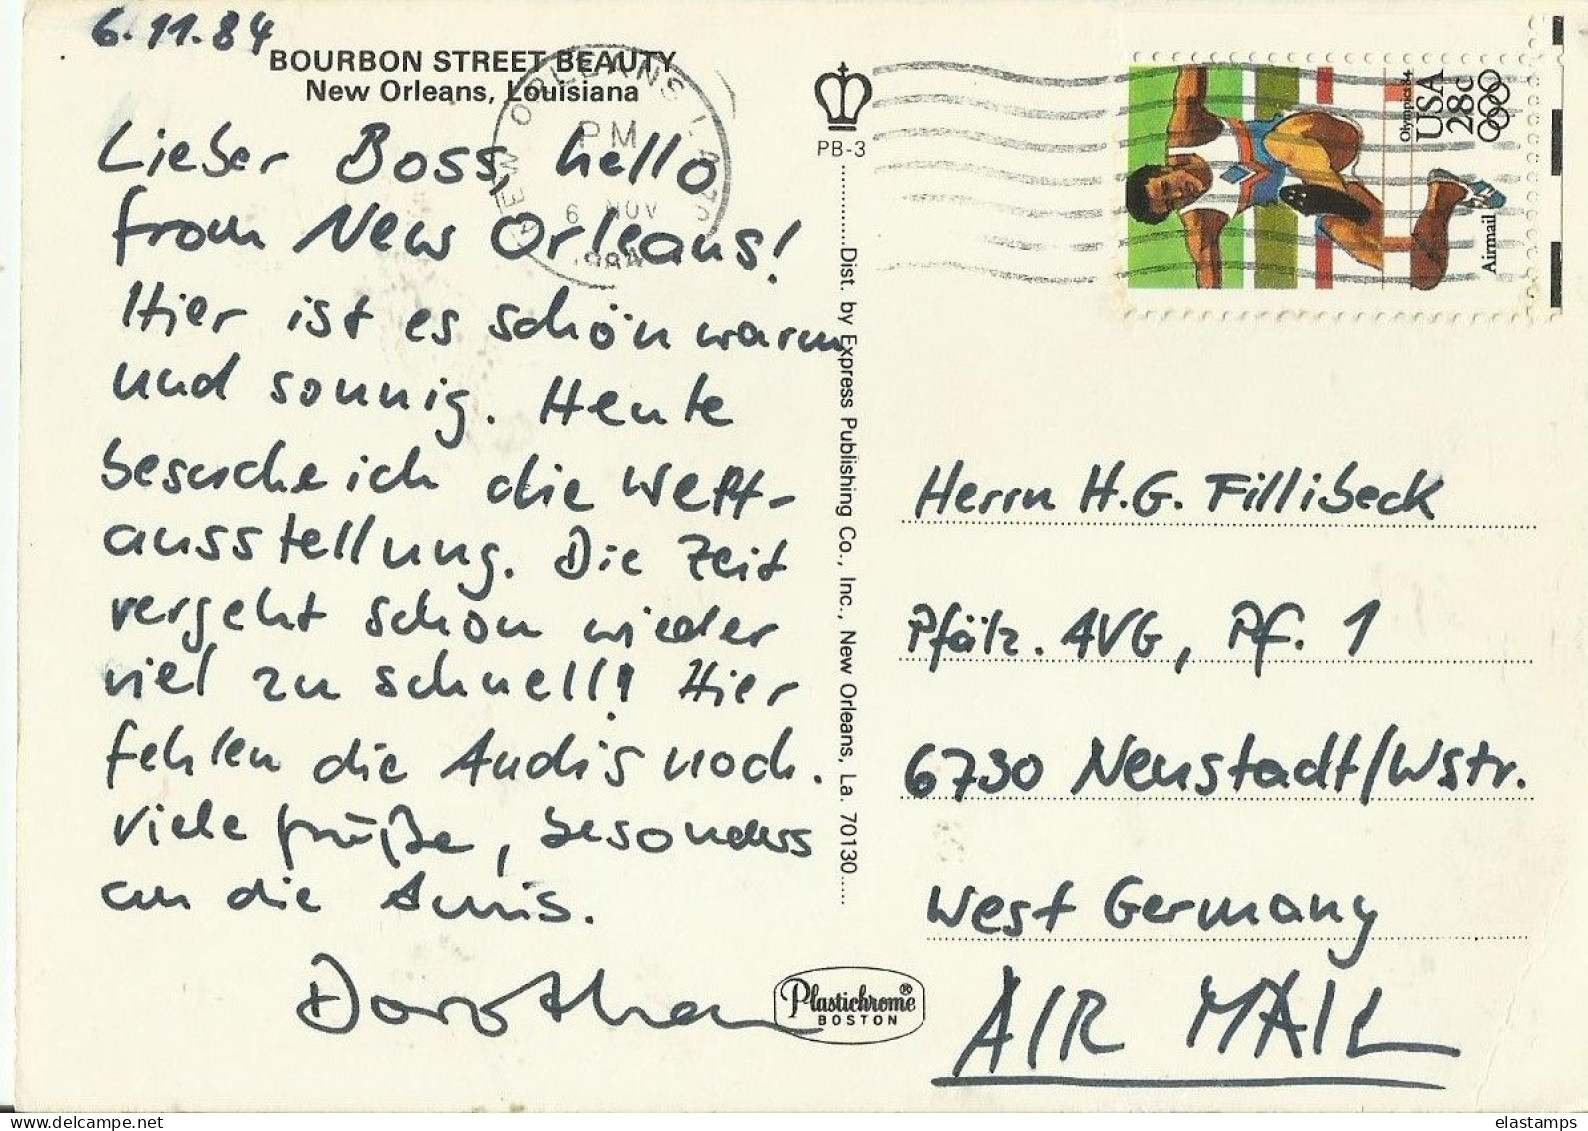 6.11.84
BOURBON STREET BEAUTY
New Orleans, Louisiana
Lieber Boss, hello
from New Orleans!
Hier ist es schön warm
und sonnig. Heute
besuche ich die Welt-
ausstellung. Die Zeit
vergeht schon wieder
viel zu schnell! Hier
fehlen die Audis noch.
Viele Grüße, besonders
an die Amis.
Dorothea
NEW ORLEANS, LA
PM
6 NOV
1984
PB-3
Dist. by Express Publishing Co., Inc., New Orleans, La. 70130
Plastichrome®
BOSTON
Olympics 84
USA
28c
Airmail
Herrn H.G. Fillibeck
Pfälz. AVG, Pf. 1
6730 Neustadt/Wstr.
West Germany
AIR MAIL
elastamps